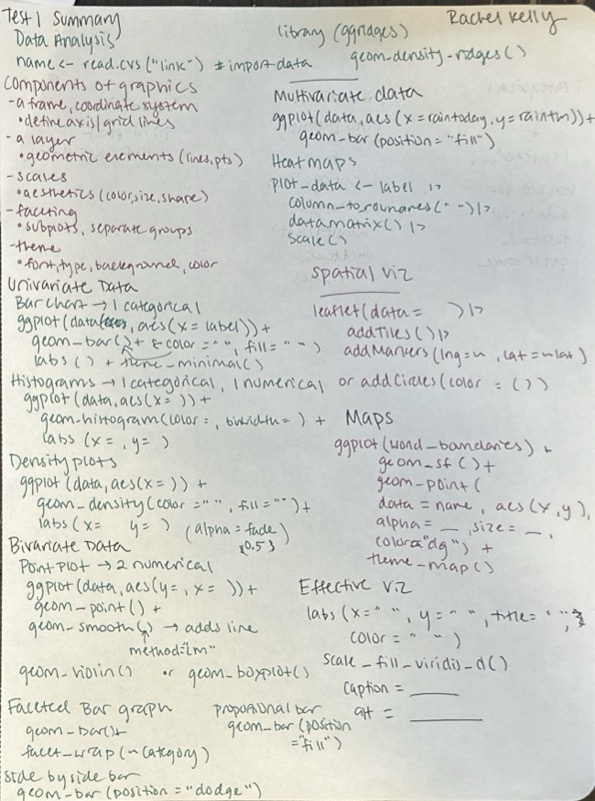 Test 1 Summary
Rachel Kelly
Data Analysis
name <- read.cvs("link") # import data
Components of graphics
- a frame, coordinate system
• define axis/grid lines
- a layer
• geometric elements (lines, pts)
- scales
• aesthetics (color, size, shape)
- faceting
• subplots, separate groups
- theme
• font, type, background, color
Univariate Data
Bar chart → 1 categorical
ggplot(data, aes(x = label)) +
geom-bar() + color = " ", fill = " ")
labs() + theme-minimal()
Histograms → 1 categorical, 1 numerical
ggplot(data, aes(x= )) +
geom-histogram(color= , binwidth= ) +
labs (x= , y= )
Density plots
ggplot(data, aes(x= )) +
geom-density(color = " ", fill = " ") +
labs (x= y= ) (alpha = fade)
0.5
Bivariate Data
Point Plot → 2 numerical
ggplot(data, aes(y= , x= )) +
geom-point() +
geom-smooth() → adds line
method="lm"
geom-violin() or geom-boxplot()
Faceted Bar graph
geom-bar()+
facet-wrap(~category)
side by side bar
geom-bar(position = "dodge")
proportional bar
geom-bar (position
="fill")
library (ggridges)
geom-density-ridges()
Multivariate data
ggplot(data, aes(x=raintoday, y=raintm)) +
geom-bar(position = "fill")
Heat maps
plot-data <- label |>
column-to-rownames(" ") |>
data.matrix() |>
scale()
spatial viz
leaflet(data = ) |>
addTiles() |>
addMarkers(lng=~ , lat=~lat)
or addCircles(color = ())
Maps
ggplot(world-boundaries) +
geom-sf() +
geom-point(
data = name, aes(x,y),
alpha = __, size = __,
color="dg") +
theme-map()
Effective viz
labs (x=" ", y=" ", title=" ",
color = " ")
scale-fill-viridis-d()
caption = ____
alt = ____